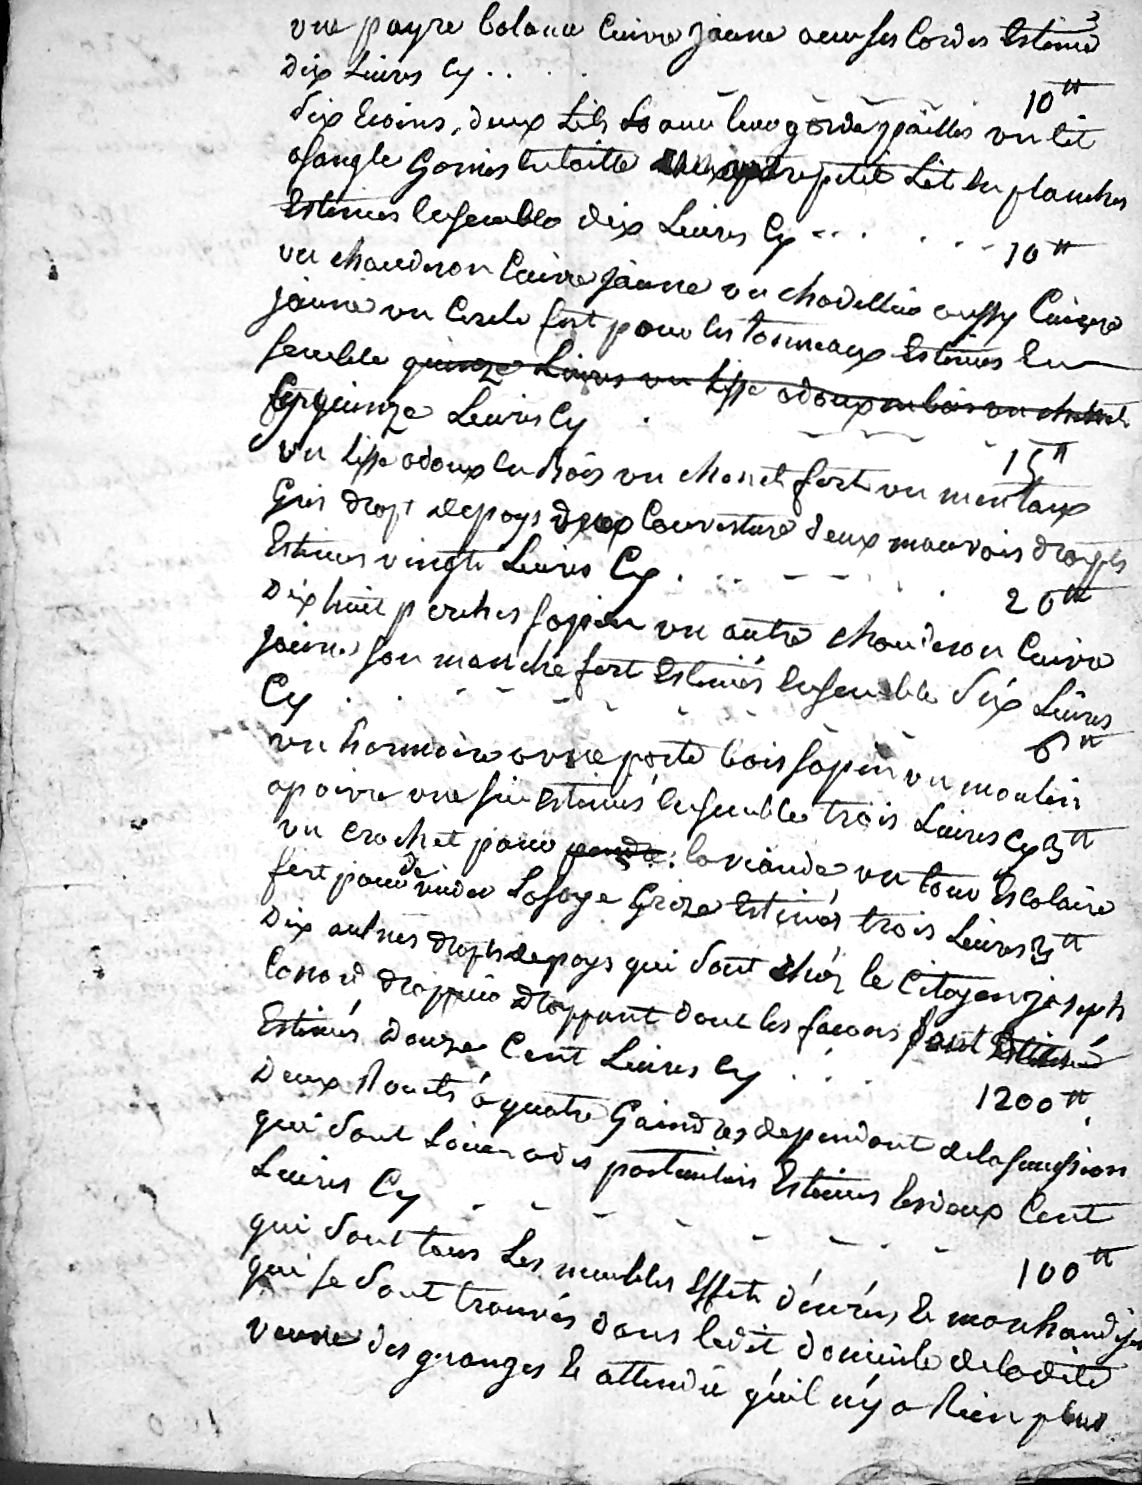 3
une payre balance Cuivre jaune avec ses Cordes Estimé
dix Livres Cy . . 10tt
Six Coins, deux Lits avec leur garde pailles un lit
a sangle Garnis en toille petit Lit en planches
Estimés Ensembles dix Livres Cy . . . . . . 10tt
un chauderon Cuivre jaune un chodellier aussy Cuivre
jaune un Cercle fert pour les tonneaux Estimés En
semble quinze Livres un lisse adoux en bois un chenet
fert quinze Livres Cy . 15tt
un lisse adoux en Bois un chenet fert un mentaux
Gris drapt de pays deux Couverture deux mauvois drapts
Estimés vingts Livres Cy . . . 20tt
Dix huit perches sapin un autre chauderon Cuivre
jaune son manche fert Estimés Ensemble Six Livres
Cy . . . 6tt
un harmoire a une porte bois sapin un moulin
apoivre une sie Estimés Ensembles trois Livres Cy 3tt
un Crochet pour pendre la viande, un tour Escolaire
fert pour devider La soye Grize Estimés trois Livres 3tt
Dix aulnes drapts de pays qui sont chéz le Citoyen joseph
drappier drappant dont les facons sont Estimé
Estimés douze Cent Livres Cy . . . 1200tt.
Deux Rouets á quatre Gaindres dependant de la sucession
qui sont Louer a des particuliers Estimés les deux Cent
Livres Cy 100tt
qui sont tous Les meubles Effets d'enrées & marchandises
qui se sont trouvés dans ledit domicile de la dite
veuve des granges & attendu qu'il n'y a Rien plus.